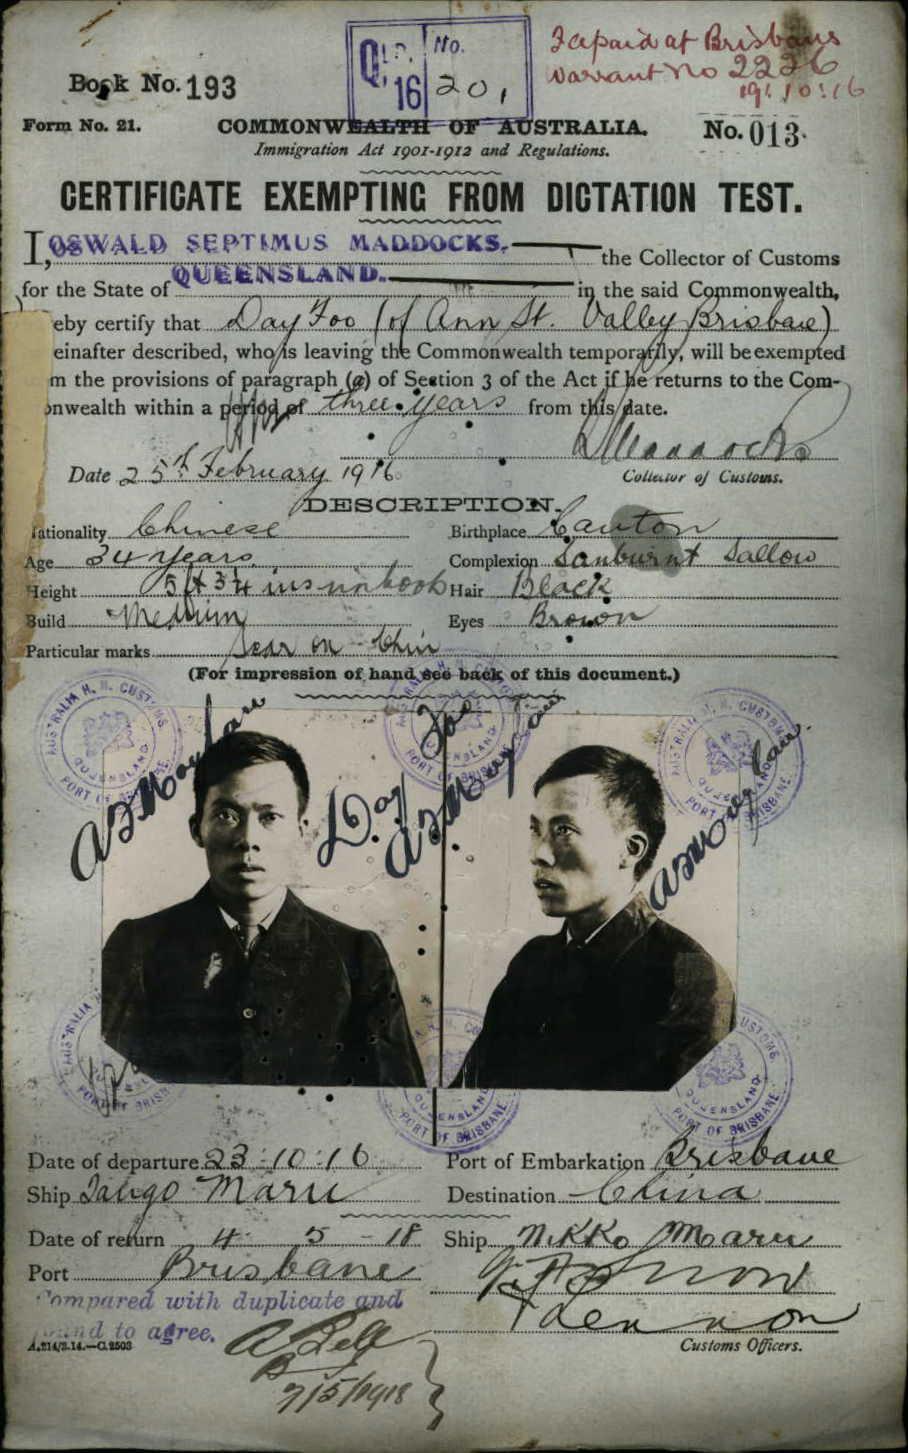 Book No. 193
Qld. 16 No. 201
Fee paid at Brisbane
Warrant No 2226
19:10:16
Form No. 21.
COMMONWEALTH OF AUSTRALIA.
No. 013
Immigration Act 1901-1912 and Regulations.
CERTIFICATE EXEMPTING FROM DICTATION TEST.
I, OSWALD SEPTIMUS MADDOCKS. the Collector of Customs
for the State of QUEENSLAND. in the said Commonwealth,
eby certify that Day Foo (of Ann St. Valley Brisbane)
einafter described, who is leaving the Commonwealth temporarily, will be exempted
m the provisions of paragraph (a) of Section 3 of the Act if he returns to the Com-
onwealth within a period of three years from this date.
Maddocks
Date 25th February 1916
Collector of Customs.
DESCRIPTION.
Nationality Chinese Birthplace Canton
Age 34 years Complexion Sunburnt Sallow
Height 5ft 3¼ ins in boots Hair Black
Build Medium Eyes Brown
Particular marks Scar on Chin
(For impression of hand see back of this document.)
AUSTRALIA H. M. CUSTOMS. QUEENSLAND PORT OF BRISBANE
Day Foo
Date of departure 23:10:16 Port of Embarkation Brisbane
Ship Tango Maru Destination China
Date of return 4 5 - 18 Ship Nikko Maru
Port Brisbane
Compared with duplicate and
found to agree.
A Bell
7/5/1918
A.214/3.14.—C.2503
Customs Officers.